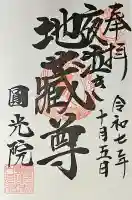 奉拝
夜泣き
地蔵尊
圓光院
令和七年
十月五日